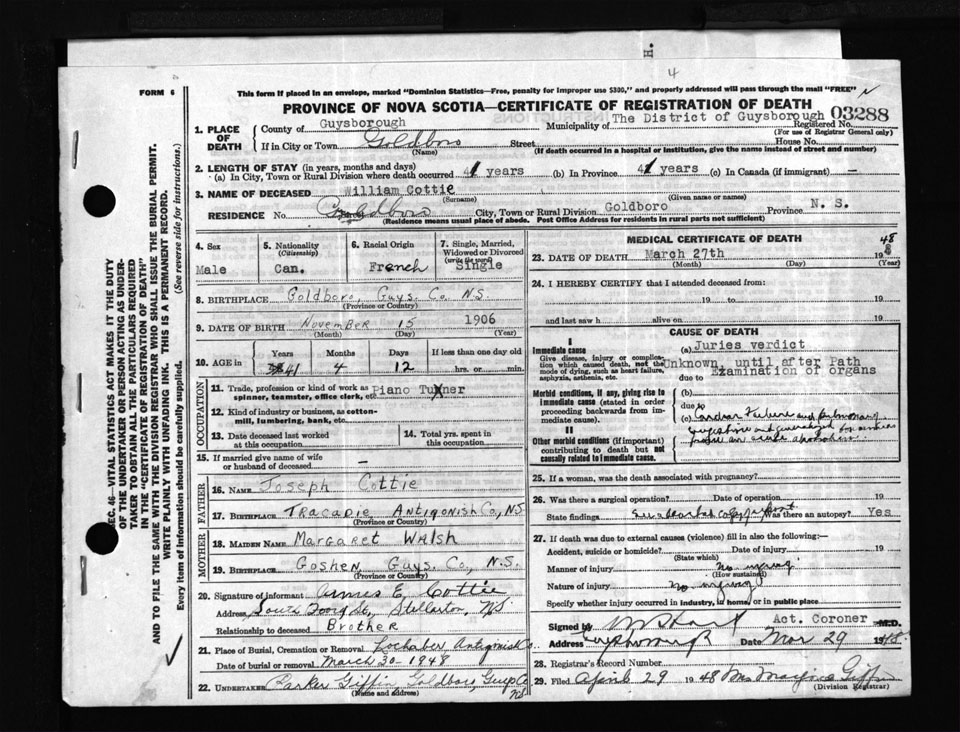 H.
4
FORM 6
This form if placed in an envelope, marked "Dominion Statistics—Free, penalty for improper use $300," and properly addressed will pass through the mail "FREE"
PROVINCE OF NOVA SCOTIA—CERTIFICATE OF REGISTRATION OF DEATH
03288
1. PLACE OF DEATH
County of Guysborough Municipality of The District of Guysborough Registered No.
(For use of Registrar General only)
If in City or Town Goldboro Street House No.
(Name) (If death occurred in a hospital or institution, give the name instead of street and number)
2. LENGTH OF STAY (in years, months and days)
(a) In City, Town or Rural Division where death occurred 41 years (b) In Province 41 years (c) In Canada (if immigrant) —
3. NAME OF DECEASED William Cottie
(Surname) (Given name or names)
RESIDENCE No. Goldboro City, Town or Rural Division Goldboro Province N. S.
(Residence means usual place of abode. Post Office Address for residents in rural parts not sufficient)
4. Sex Male
5. Nationality (Citizenship) Can.
6. Racial Origin French
7. Single, Married, Widowed or Divorced (write the word) Single
8. BIRTHPLACE Goldboro, Guys. Co. N.S.
(Province or Country)
9. DATE OF BIRTH November 15 1906
(Month) (Day) (Year)
10. AGE in Years Months Days If less than one day old
41 4 12 hrs. or min.
OCCUPATION
11. Trade, profession or kind of work as spinner, teamster, office clerk, etc Piano Tuner
12. Kind of industry or business, as cotton-mill, lumbering, bank, etc.
13. Date deceased last worked at this occupation
14. Total yrs. spent in this occupation
15. If married give name of wife or husband of deceased —
FATHER
16. NAME Joseph Cottie
17. BIRTHPLACE Tracadie Antigonish Co, N.S
(Province or Country)
MOTHER
18. MAIDEN NAME Margaret Walsh
19. BIRTHPLACE Goshen, Guys. Co, N.S.
(Province or Country)
20. Signature of informant E. Cottie
Address South Foord St, Stellarton, N.S
Relationship to deceased Brother
21. Place of Burial, Cremation or Removal Lochaber Antigonish Co.
Date of burial or removal March 30 1948
22. UNDERTAKER Parker Giffin, Goldboro, Guys Co NS
(Name and address)
MEDICAL CERTIFICATE OF DEATH
23. DATE OF DEATH March 27th 1948
(Month) (Day) (Year)
24. I HEREBY CERTIFY that I attended deceased from:
19 to 19
and last saw h alive on 19
CAUSE OF DEATH
I
Immediate cause
Give disease, injury or complication which caused death, not the mode of dying, such as heart failure, asphyxia, asthenia, etc.
(a) Juries verdict
Unknown, until after Path
due to Examination of organs
Morbid conditions, if any, giving rise to immediate cause (stated in order proceeding backwards from immediate cause).
(b)
due to
(c) Cardiac Failure and Pulmonary
II
Other morbid conditions (if important) contributing to death but not causally related to immediate cause.
25. If a woman, was the death associated with pregnancy?
26. Was there a surgical operation? Date of operation 19
State findings Was there an autopsy? Yes
27. If death was due to external causes (violence) fill in also the following:—
Accident, suicide or homicide? Date of injury 19
(State which)
Manner of injury No injury
(How sustained)
Nature of injury No injury
Specify whether injury occurred in industry, in home, or in public place
Signed by Act. Coroner M.D.
Address Guysborough Date Mar 29 1948
28. Registrar's Record Number
29. Filed April 29 1948 Mrs Marjorie Giffin
(Division Registrar)
SEC. 46—VITAL STATISTICS ACT MAKES IT THE DUTY
OF THE UNDERTAKER OR PERSON ACTING AS UNDER-
TAKER TO OBTAIN ALL THE PARTICULARS REQUIRED
IN THE "CERTIFICATE OF REGISTRATION OF DEATH"
AND TO FILE THE SAME WITH THE DIVISION REGISTRAR WHO SHALL ISSUE THE BURIAL PERMIT.
WRITE PLAINLY WITH UNFADING INK. THIS IS A PERMANENT RECORD.
Every item of Information should be carefully supplied. (See reverse side for instructions.)